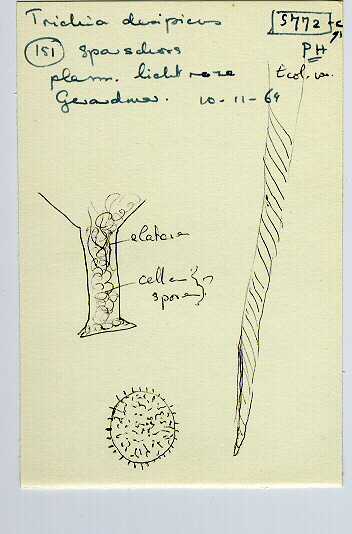 Trichia decipiens
5772-c
(151) sparschors
PH
plasm. licht roze
Ecol.
Gerardmer. 10-11-69
elateren
cellen
sporen